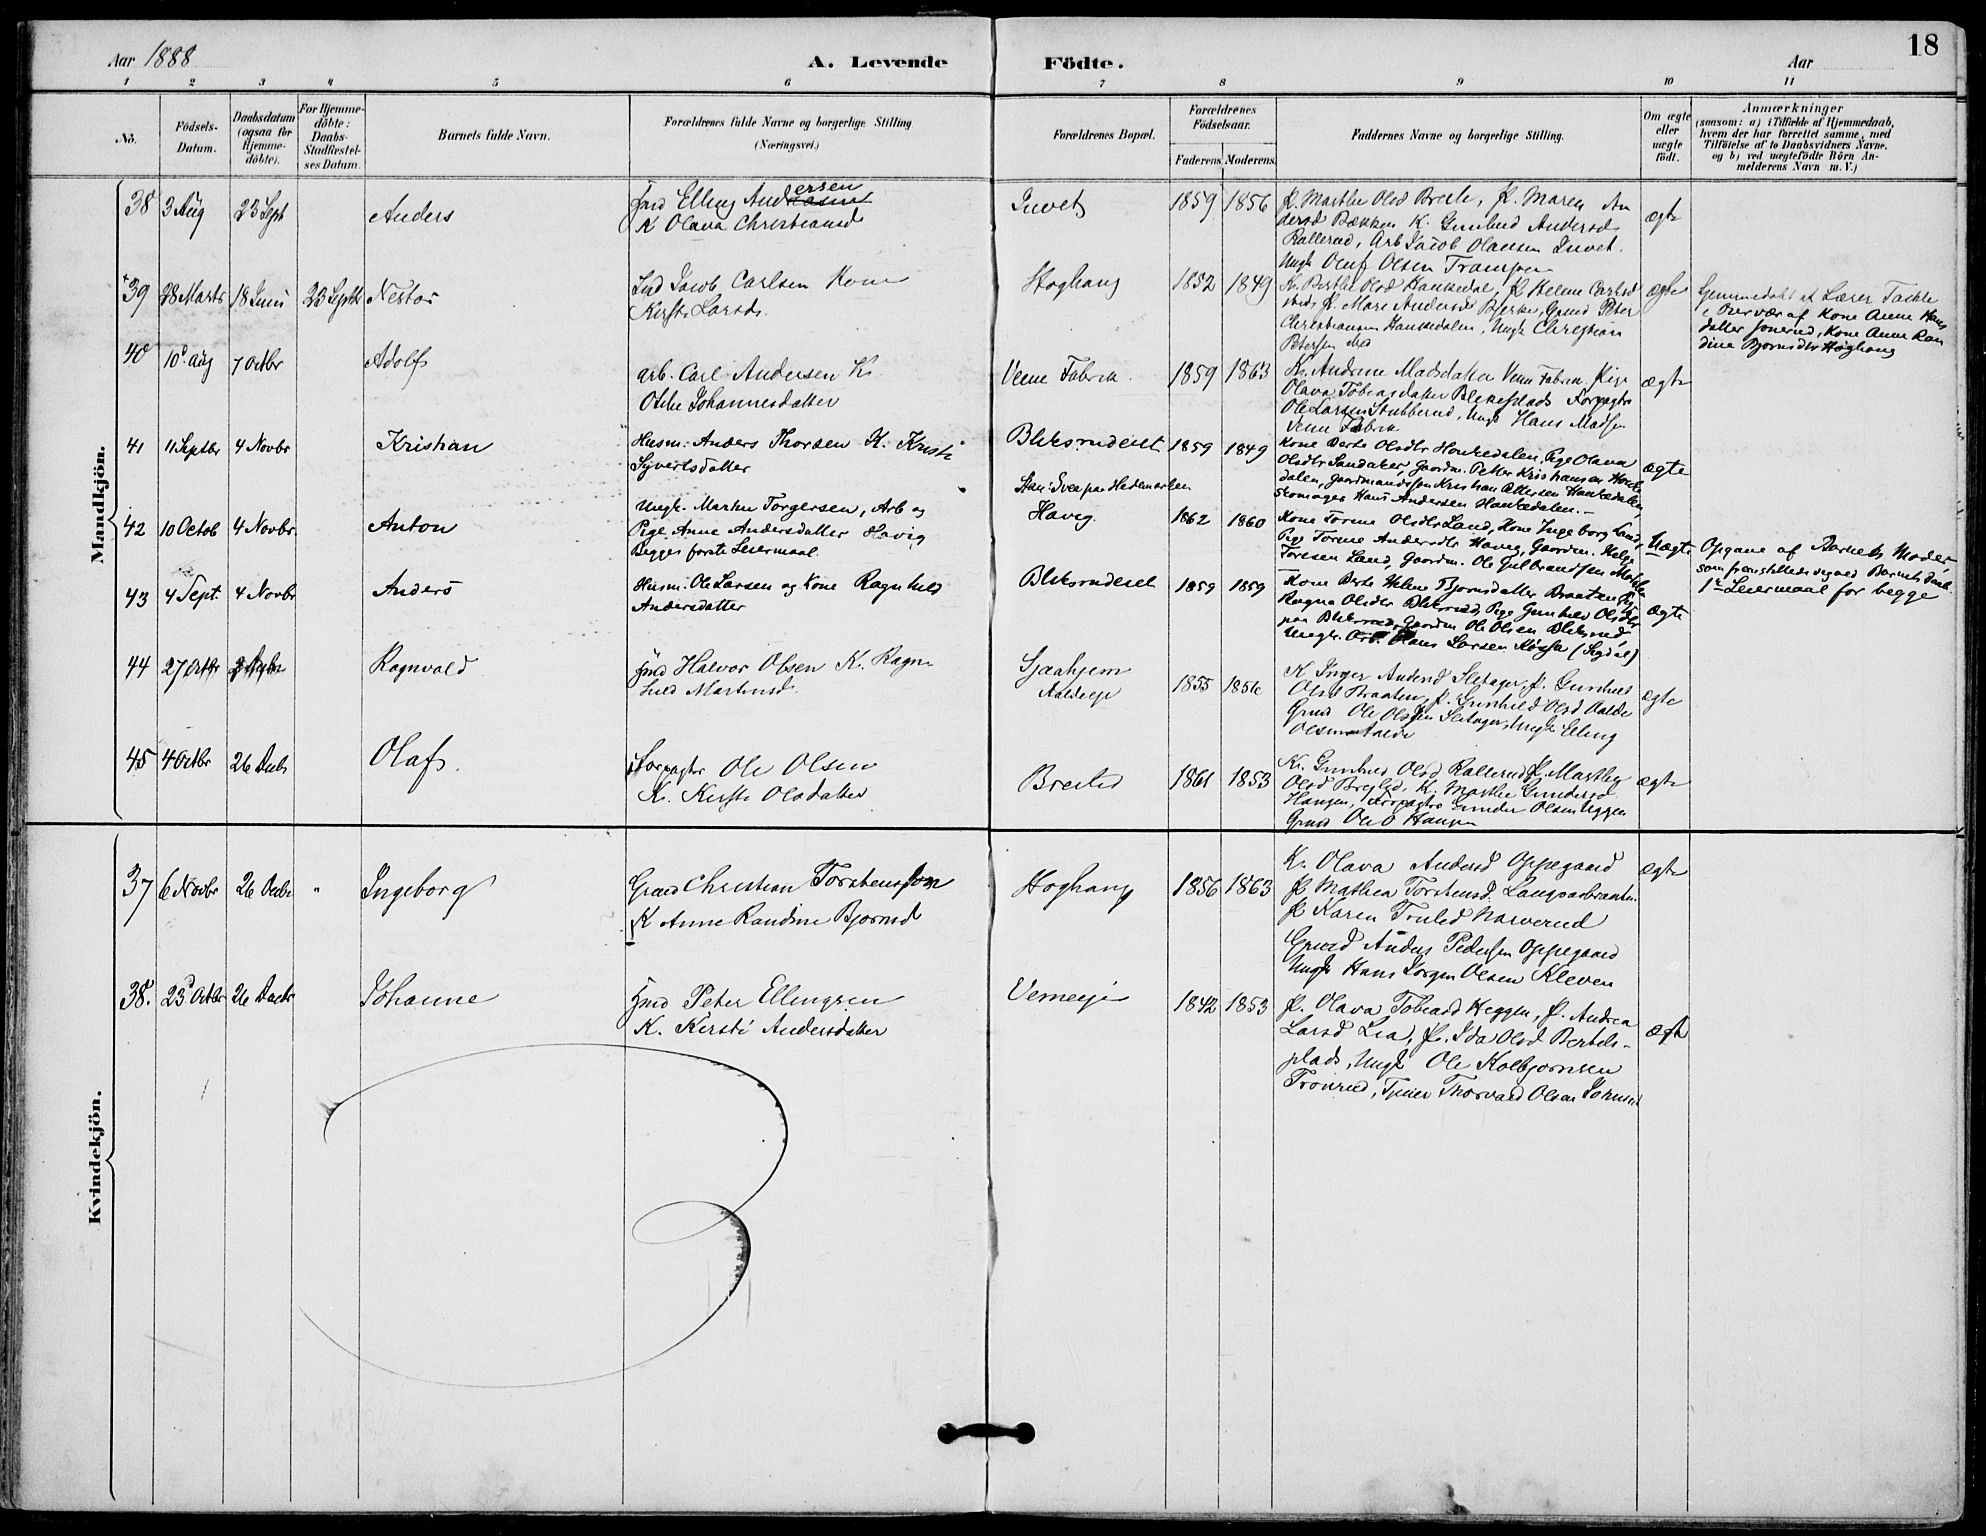 Aar 1888
A. Levende Födte.
Aar
18
1 2 3 4 5 6 7 8 9 10 11
No.
Födsels-
Datum.
Daabsdatum
(ogsaa for
Hjemme-
döbte).
For Hjemme-
döbte:
Daabs-
Stadfæstel-
ses Datum.
Barnets fulde Navn.
Forældrenes fulde Navne og borgerlige Stilling
(Næringsvei.)
Forældrenes Bopæl.
Forældrenes
Födselsaar.
Faderens
Moderens.
Faddernes Navne og borgerlige Stilling.
Om ægte
eller
uægte
födt.
Anmærkninger
(saasom: a) i Tilfælde af Hjemmedaab,
hvem der har forrettet samme, med
Tilföielse af to Daabsvidners Navne.
og b) ved uægtefödte Börn An-
melderens Navn m. V.)
Mandkjön.
38 3 Aug 23 Sept Anders
Elling Andersen
K Olava Christiansd
1859 1856
P. Marthe Olsd P. Maren An
dersd Bækken K. Gunhild Andersd
Rallerud, Arb Jacob Olausen
Ungk Oluf Olsen
ægte
39 28 Marts 18 Juni 23 Septbr Nestor
Jacob Carlsen Kone
Kirsti Larsd.
Hoghaug
1852 1849
K. Berthe Olsd Hankedal, P Helene Carlsd
P. Mare Andersd Bjerke, Gmd Peter
Christiansen Hankedalen, Ungk Christian
Petersen
ægte
Hjemmedøbt af Lærer
i Overvær af Kone Anne Hans
datter Kone Anne Ran
dine Bjornsdtr Høghaug
40 10 Aug 7 Octbr Adolf
Arb. Carl Andersen K.
Johannesdatter
Fabrik
1859 1863
K. Andrine Madsdatter Fabrik. Pige
Olava Tobiasdatter Forpagter
Ole Larsen Stubberud, Ungk Hans Madsen
Fabrik
ægte
41 11 Septbr 4 Novbr Kristian
Husm. Anders Thorsen K. Kirsti
Syvertsdatter
Bleksrudeiet
1859 1849
Kone Berte Olsdtr Hankedalen, Pige Olava
Olsdtr Sandaker, Gaardm. Petter Kristiansen Hanke
dalen, Gaardmandssøn Kristian Pettersen Hankedalen,
Skomager Hans Andersen Hankedalen.-
ægte
42 10 Octob 4 Novbr. Anton
Ungk. Martin Torgersen, Arb og
Pige Anne Andersdatter Havig
Begges første Leiermaal.
paa Hedemarken
Havig.
1862 1860
Kone Torine Olsdtr Land, Kone Ingeborg Land,
Pige Torine Andersdtr Havig, Gaardm. Helge
Toresen Land, Gaardm. Ole Gulbrandsen
Uægte
Opgave af Barnets Moder
som fremstilledes ved Barnets Daab.
1te Leiermaal for begge
43 4 Sept. 4 Novbr Anders
Husm. Ole Larsen og Kone Ragnhild
Andersdatter
Bleksrudeiet
1859 1859
Kone Berte Helene Bjornsdatter Braaten, Pige
Ragna Olsdtr Bleksrud, Pige Gunhild Olsdtr
paa Bleksrud, Gaardm Ole Olsen Bleksrud,
Ungk. Hans Larsen (Sigdal)
ægte
44 27 Octbr Ragnvald
Halvor Olsen K. Ragn
hild Martinsd.
Sjaahjem
1855 1856
K Inger Andersd Sletager, P. Gunhild
Olsd Braaten, P. Gunhild Olsd Aalde
Gmd Ole Olsen Sletager, Ungk Elling
Olsen Aalde
ægte
45 4 Octbr 26 Decbr Olaf.
Forpagter Ole Olsen
K. Kirsti Olsdatter
1861 1853
K. Gunhild Olsd Rallerud, P. Marthe
Olsd K. Marthe Gundersd
Haugen, Forpagter Gunder Olsen Heggen
Gmd Ole O Haugen
ægte
Kvindekjön.
37 6 Novbr 26 Decbr " Ingeborg
Gmd Christian Torstensson
K Anne Randine Bjornsd
Hoghaug
1856 1863
K. Olava Andersd Oppegaard
P Mathea Torstensd. Langaarbraaten
P Karen Trulsd Narverud
Gmd Anders Pedersen Oppegaard
Ungk Hans Jørgen Olsen Kleven
ægte
38. 23 Octbr 26 Decbr Johanne
Gmd Peter Ellingsen
K. Kirsti Andersdatter
1842 1853
P. Olava Tobiasd Heggen, P. Andrea
Larsd Lia, P. Ida Olsd Bertels-
plads, Ungk Ole Kolbjornsen
Tronrud, Tjener Thorvald Olsen
ægte